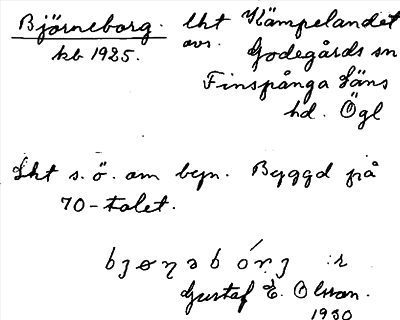 Björneborg. lht Kämpelandet
kb 1925. avs. Godegårds sn
Finspånga läns
hd. Ögl
Lht s.ö. om byn. Byggd på
70-talet.
Gustaf E. Olsson.
1930